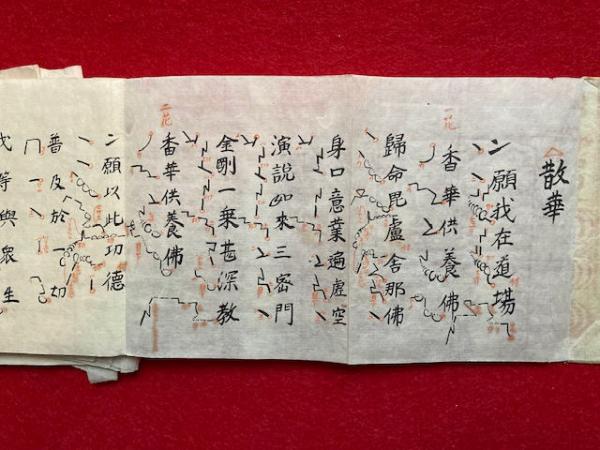 散華
願我在道場
一花
香華供養佛
歸命毘盧舍那佛
身口意業遍虚空
演說如來三密門
金剛一乘甚深教
二花
香華供養佛
願以此功德
普及於一切
我等與衆生